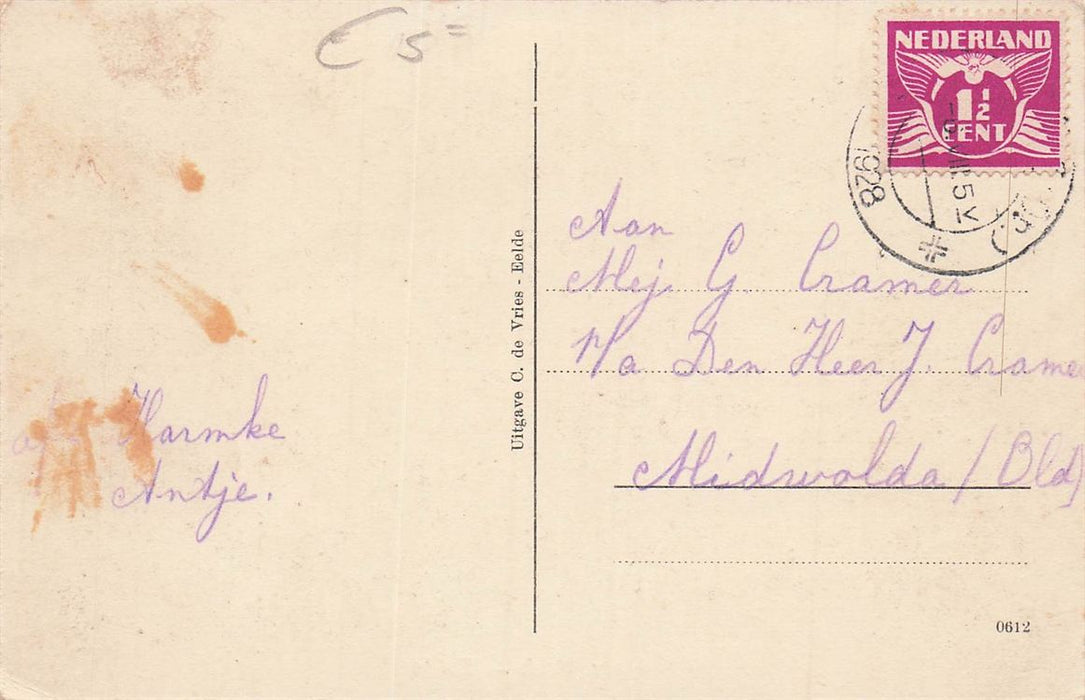 € 5=
NEDERLAND
1½
CENT
VIII 5
1928
Aan
Mej. G. Cramer
Den Heer J. Cramer
Midwolda / Old
Harmke
Antje.
Uitgave C. de Vries - Eelde
0612